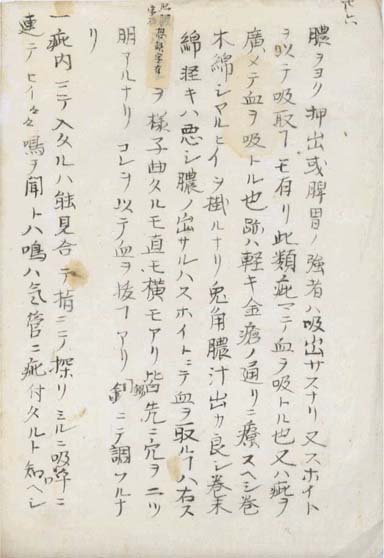 膿ヲヨク押出或脾胃ノ強者ハ吸出サスナリ又スホイト
ヲ以テ吸取フモ有リ此類疵ニテ血ヲ吸トル也又ハ疵ヲ
廣メテ血ヲ吸トル也跡ハ軽キ金瘡ノ通リニ療スヘシ巻
木綿シマルヒイヲ掛ルナリ兎角膿汁出カ良シ巻末
綿軽キハ悪シ膿ノ出サルハスホイトニテ血ヲ取ルヿハ右ス
ヲ様子曲タルモ直モ横モアリ皆先ニ穴ヲ二ツ
明アルナリコレヲ以テ血ヲ抜フアリ銅ニテ調フルナ
リ
一疵内ニテ入タルハ能見合テ指ニテ探リミルニ吸呼ニ
連テヒイ々々鳴ヲ聞トハ鳴ハ気管ニ疵付タルト知ヘシ